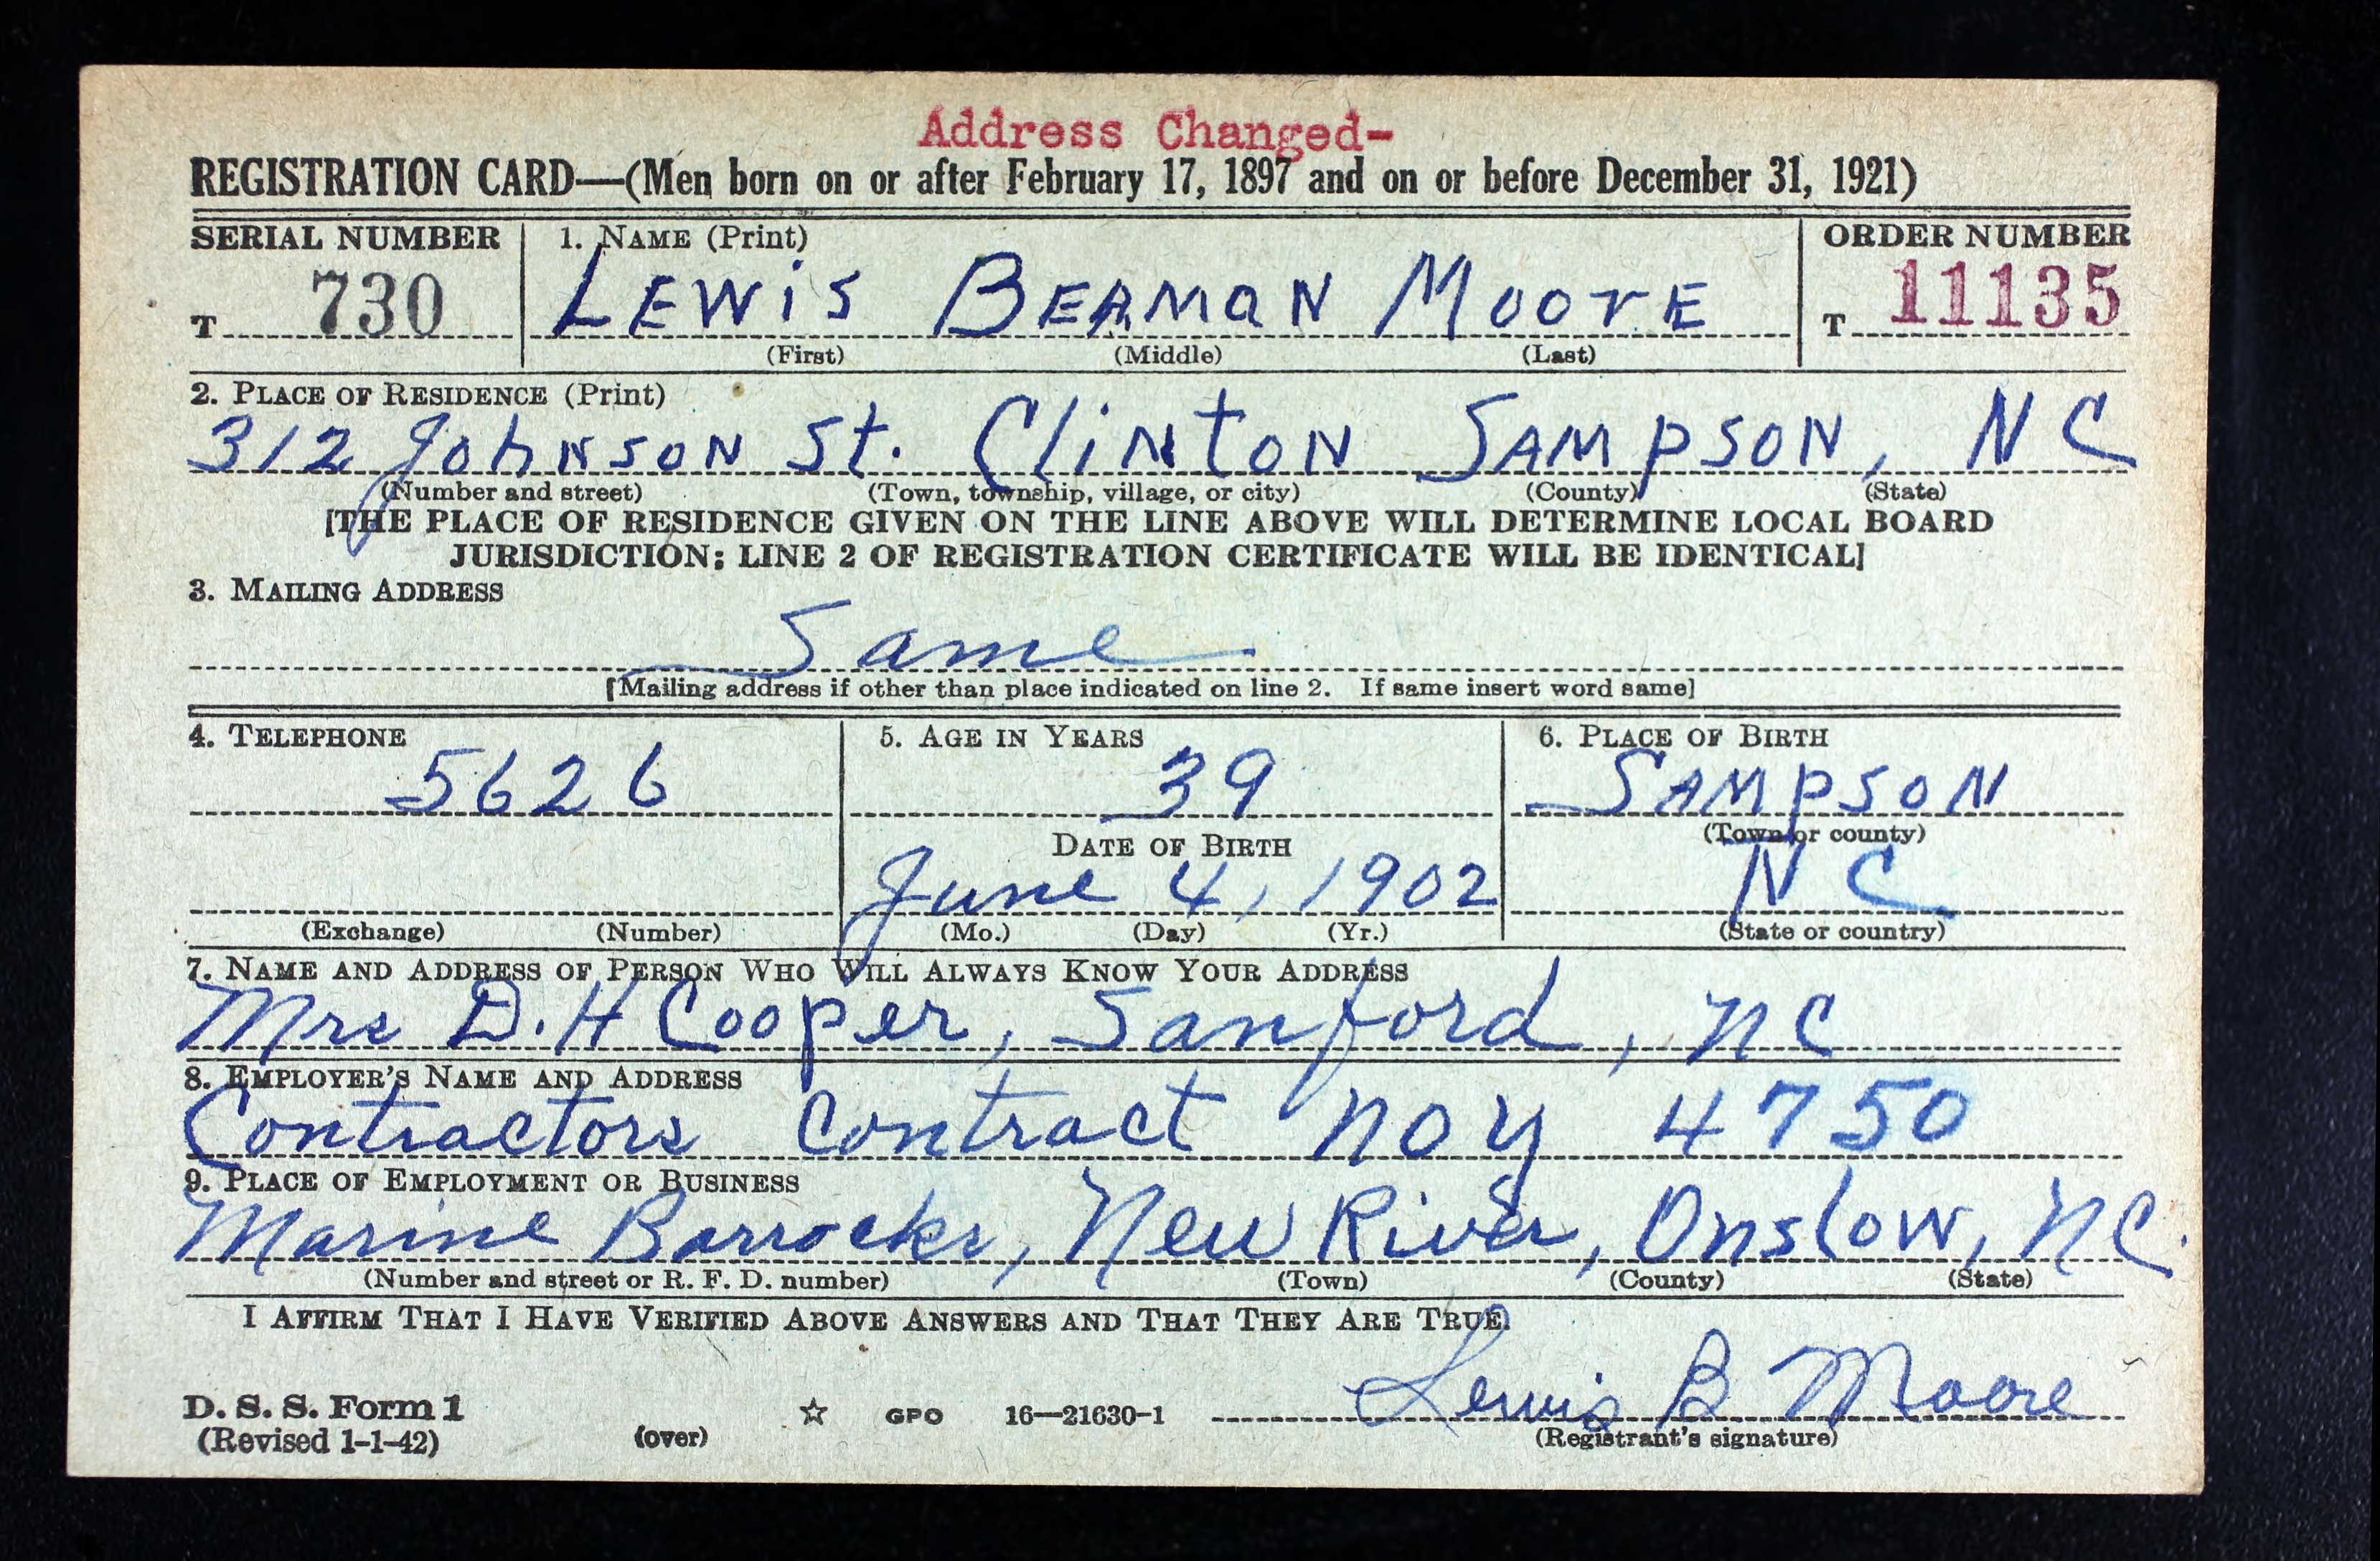 Address Changed-
REGISTRATION CARD—(Men born on or after February 17, 1897 and on or before December 31, 1921)
SERIAL NUMBER 1. NAME (Print) ORDER NUMBER
T 730 LEWiS BEAMaN MOOrE T 11135
(First) (Middle) (Last)
2. PLACE OF RESIDENCE (Print)
312 JohNSON St. CliNtON SAMpSON, N C
(Number and street) (Town, township, village, or city) (County) (State)
[THE PLACE OF RESIDENCE GIVEN ON THE LINE ABOVE WILL DETERMINE LOCAL BOARD
JURISDICTION; LINE 2 OF REGISTRATION CERTIFICATE WILL BE IDENTICAL]
3. MAILING ADDRESS
Same
[Mailing address if other than place indicated on line 2. If same insert word same]
4. TELEPHONE 5. AGE IN YEARS 6. PLACE OF BIRTH
5626 39 SAMPSON
DATE OF BIRTH (Town or county)
June 4, 1902 N C
(Exchange) (Number) (Mo.) (Day) (Yr.) (State or country)
7. NAME AND ADDRESS OF PERSON WHO WILL ALWAYS KNOW YOUR ADDRESS
Mrs D.H Cooper, Sanford, NC
8. EMPLOYER'S NAME AND ADDRESS
Contractors Contract NOy 4750
9. PLACE OF EMPLOYMENT OR BUSINESS
Marine Barracks, New River, Onslow, NC.
(Number and street or R. F. D. number) (Town) (County) (State)
I AFFIRM THAT I HAVE VERIFIED ABOVE ANSWERS AND THAT THEY ARE TRUE.
Lewis B Moore
D. S. S. Form 1
(Revised 1-1-42) (over) ☆ GPO 16—21630-1 (Registrant's signature)